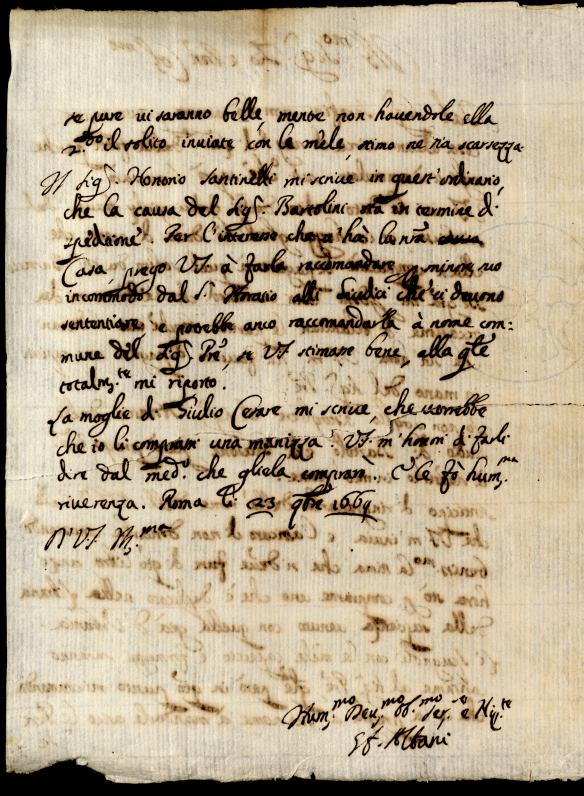 se pure vi saranno belle, mente non havendole ella
2.do il solito inviate con le mele, stimo ne sia scarsezza.
Il Sig.r Honorio Santinelli mi scrive in quest'ordinario,
che la causa del Sig.r Bartolini stà in termine di
speditione. Per l'interesse che v'hà la nra
Casa, prego VS. à farla raccomandare p minor suo
incommodo dal S.r Horatio alli Giudici che ci devono
sententiare, e potrebbe anco raccomandarla à nome com:
mune del Sig.r Pre, se VS stimasse bene, alla qle
totalm.te mi riporto.
La moglie di Giulio Cesare mi scrive, che vorrebbe
che io li comprassi una manizza. VS. m'honori di farli
dire dal med.o che gliela comprarò. E le fò hum.ma
riverenza. Roma li 23 9bre 1669
Di V.S. Ill.ma
Hum.mo Dev.mo Obb.mo Ser.e e Nip.te
Gf. Albani